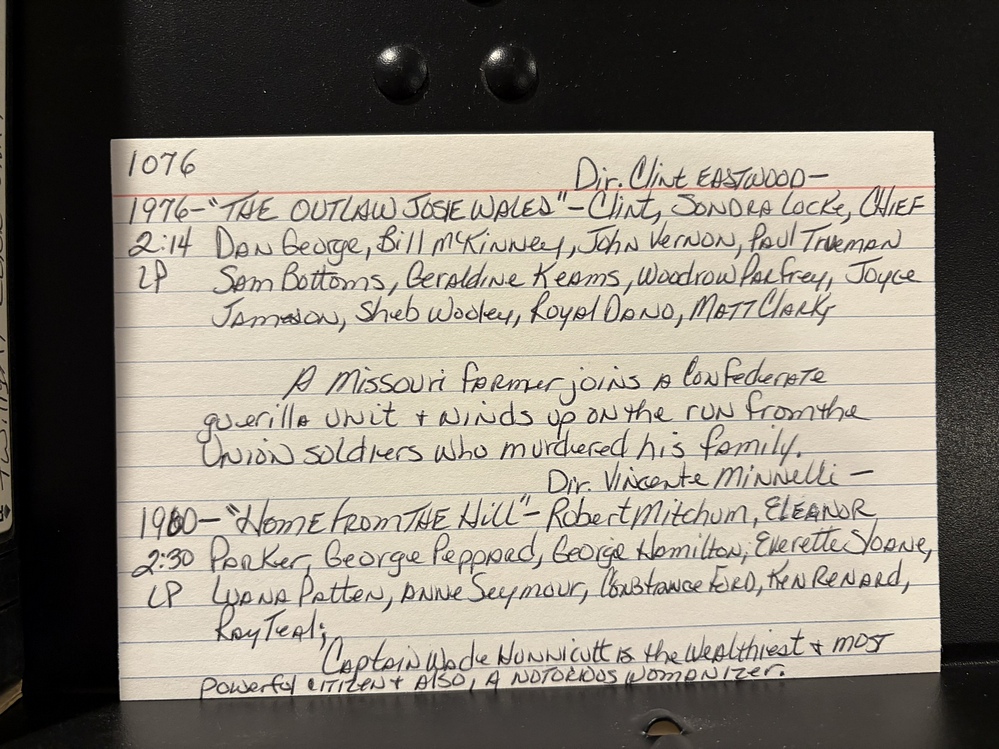 1076
Dir. Clint EASTWOOD-
1976-"THE OUTLAW JOSIE WALES"-Clint, SONDRA Locke, CHIEF
2:14 DAN George, Bill McKinney, John Vernon, Paul Trueman
LP Sam Bottoms, Geraldine Keams, Woodrow Parfrey, Joyce
Jameson, Sheb Wooley, Royal DANO, MATT Clark,
A Missouri FARMER joins A Confederate
guerilla UNIT + WINDS UP ON the RUN from the
UNION soldiers who murdered his family.
Dir. Vincente Minnelli -
1960-"Home From THE Hill"-Robert Mitchum, ELEANOR
2:30 Parker, George Peppard, George Hamilton, Everette Sloane,
LP LUANA Patten, ANNE Seymour, Constance FORD, Ken RENARD,
Ray Teal;
Captain Wade Hunnicutt is the wealthiest + most
powerful citizen + Also, A NOTORIOUS womanizer.